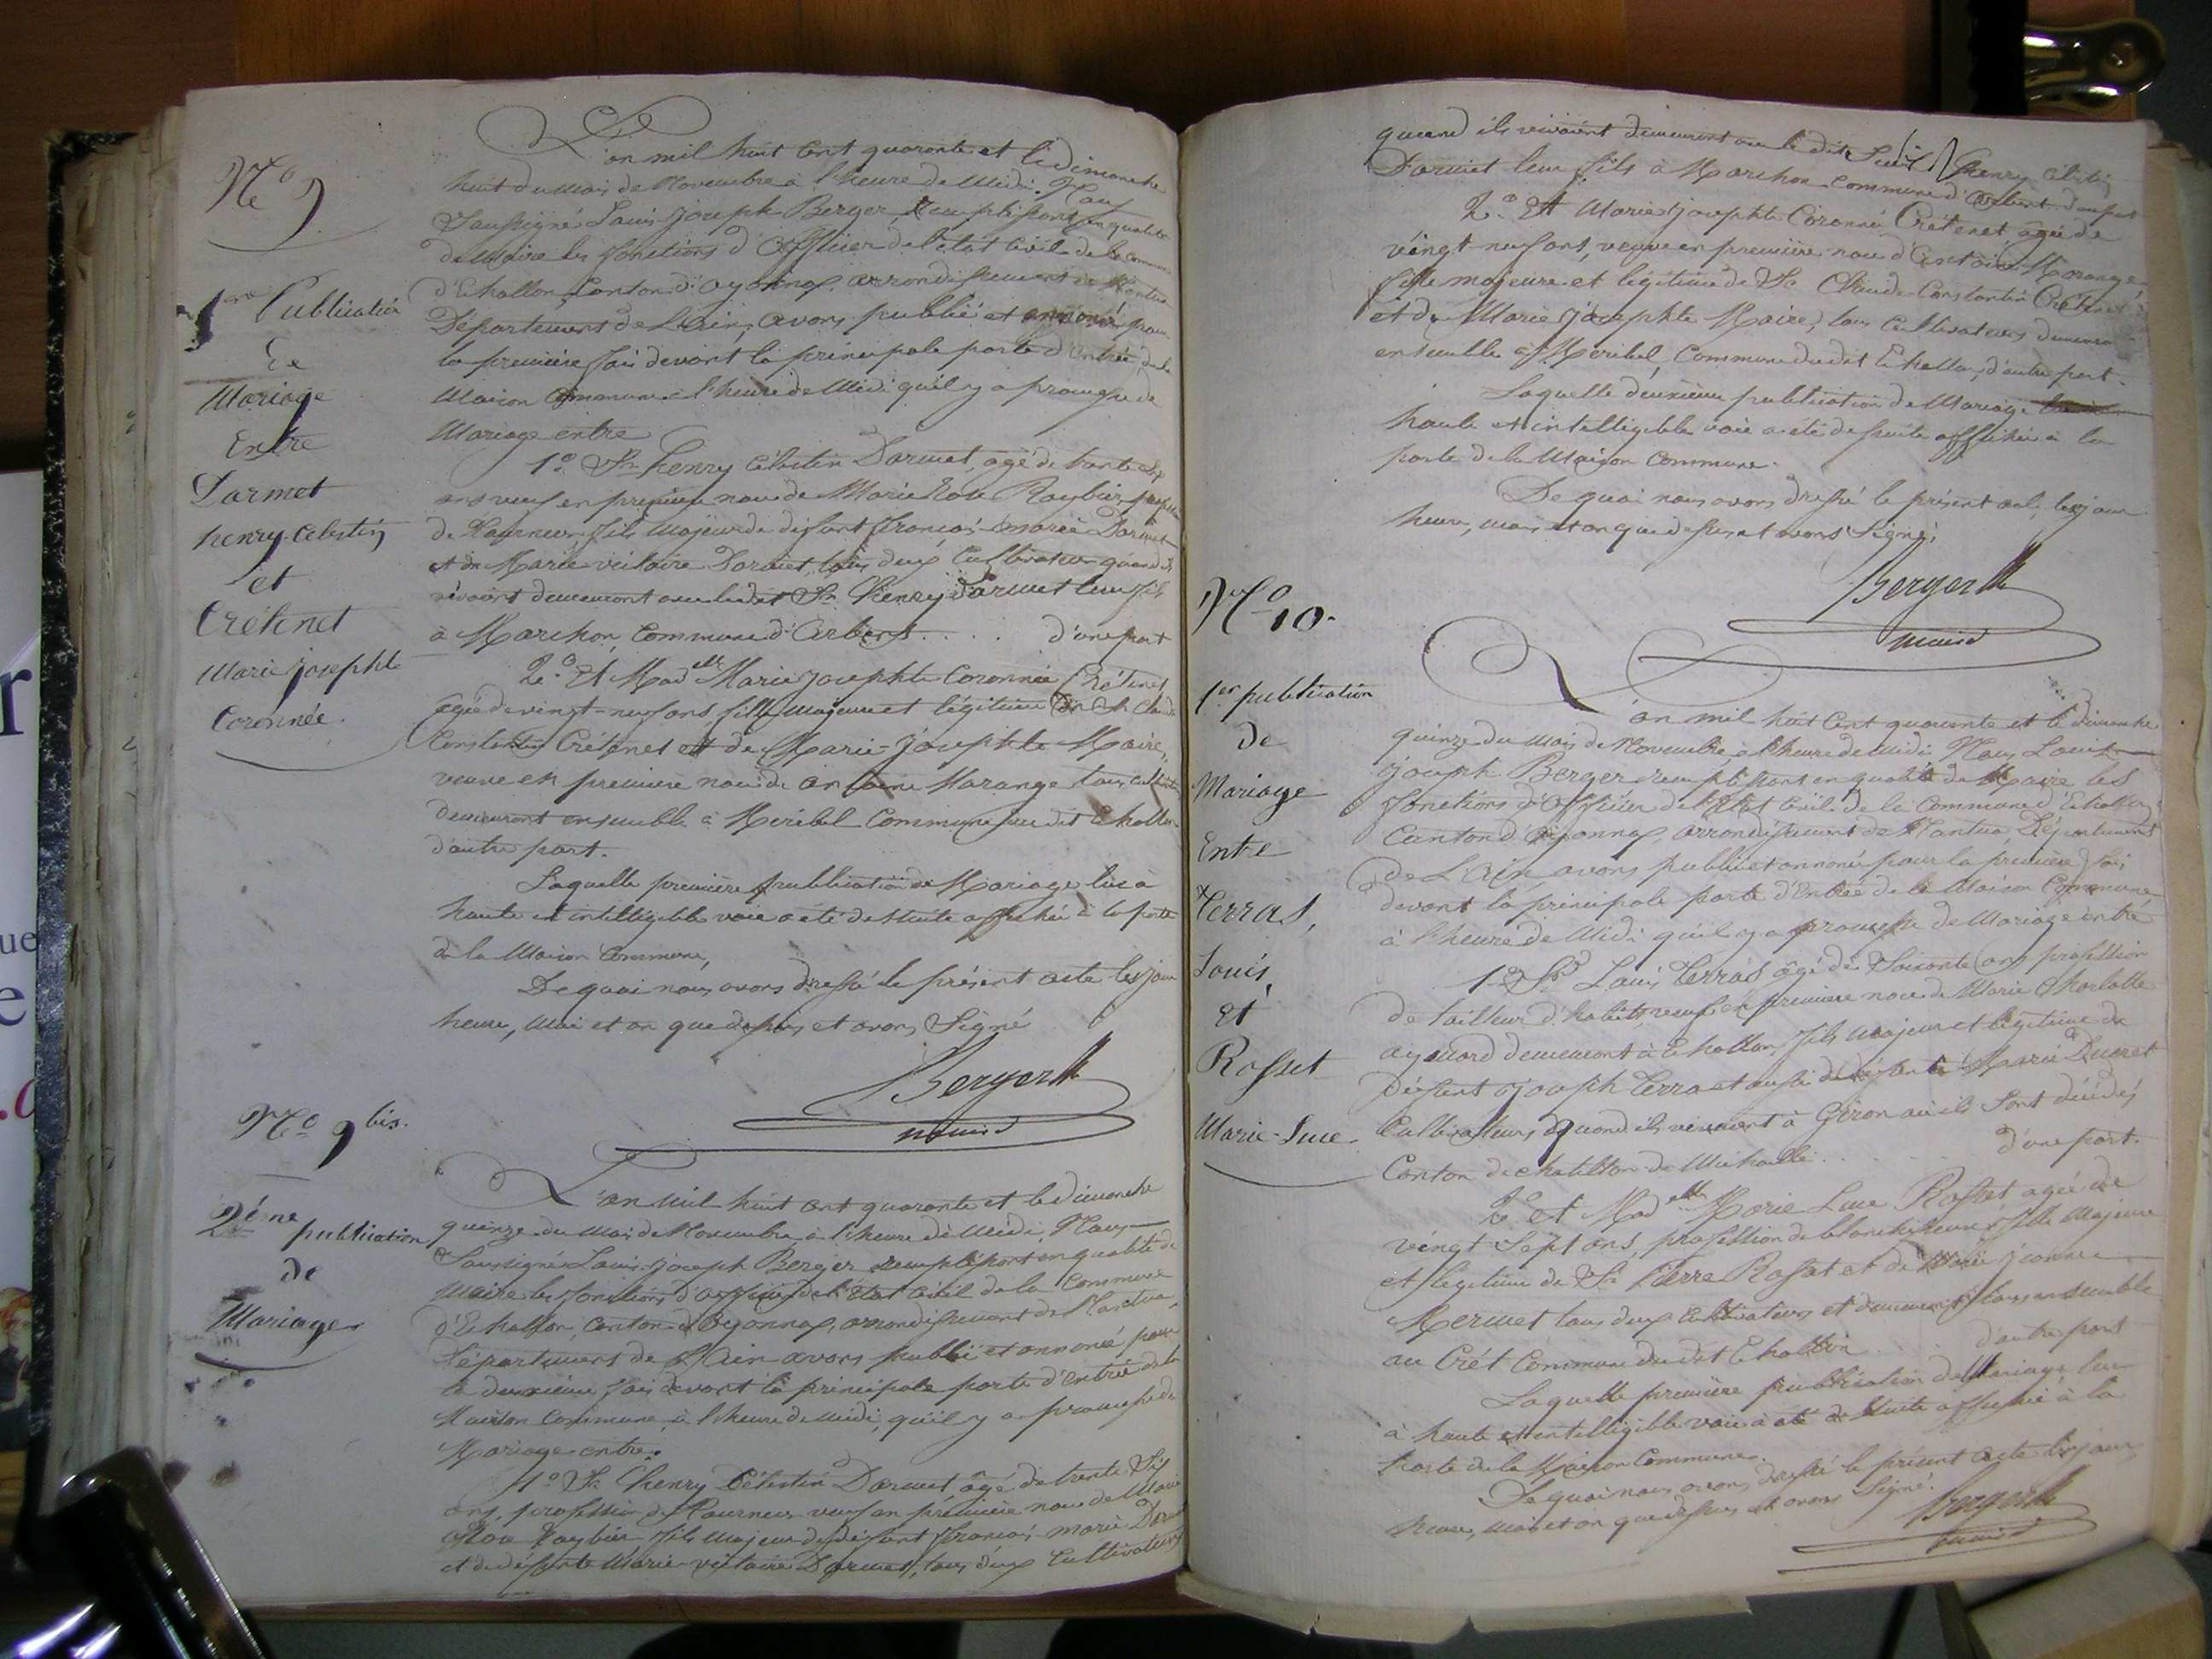 N.o 9
1ere Publication
De
Mariage
Entre
Darmet
henry Célestin
et
Crétenet
Marie josephte
Coronnée.
L'an mil huit Cent quarante et le dimanche
huit du mois de Novembre à l'heure de Midi. Nous
Soussigné Louis-joseph Berger Remplissant en qualité
de Maire les fonctions d'officier de l'état Civil de la Commune
d'Echallon, Canton d'oyonnax, arrondissement de Nantua
Département de L'Ain, avons publié et annoncé pour
la première fois devant la principale porte d'entrée de la
Maison Commune à l'heure de Midi qu'il y a promesse de
Mariage entre
1.o Sr. henry Célestin Darmet, agé de trente six
ans veuf en première noce de Marie Raybier, profession
de fils majeur de défunt françois-marie Darmet
et de Marie victoire Darmet, tous deux Cultivateur quand ils
vivaient demeurant avec ledit Sr. henry Darmet leur fils
à Marchon, Commune d'Arbent. . . . . d'une part
2.o Et Madelle Marie josephte Coronnée Crétenet
agée de vingt-neuf ans fille majeure et légitime de Sr. Claude
Constantin Crétenet et de Marie-josephte Maire,
veuve en première noce de antoine Marange tous cultivateurs
demeurant ensemble à Meribel Commune du dit Echallon
d'autre part.
Laquelle première publication de Mariage lue à
haute et intelligible voix a été de suite affichée à la porte
de la Maison Commune,
De quoi nous avons dressé le présent acte les jour
heure, mois et an que dessus et avons Signé
Berger
maire
N.o 9 bis.
2ème publication
de
Mariage
L'an mil huit cent quarante et le dimanche
quinze du mois de Novembre à l'heure de Midi, Nous
Soussigné Louis-joseph Berger remplissant en qualité de
Maire les fonctions d'officier de l'Etat Civil de la Commune
d'Echallon, Canton d'Oyonnax, arrondissement de Nantua,
Département de L'Ain avons publié et annoncé pour
la deuxième fois devant la principale porte d'entrée de la
Maison Commune, à l'heure de midi, qu'il y a promesse de
Mariage entre.
1.o Sr. henry Célestin Darmet, âgé de trente Six
ans, profession de veuf en première noce de Marie
Raybier fils majeur de défunt françois-marie Darmet
et de défunte Marie-victoire Darmet, tous deux Cultivateurs
quand ils vivaient demeurant avec le dit Sieur henry Célestin
Darmet leur fils à Marchon commune d'Arbent. d'une part
2.o Et Marie josephte Coronné Crétenet agée de
vingt neuf ans, veuve en première noce d'Antoine Marange,
fille majeure et légitime de Sr. Claude-Constantin Crétenet
et de Marie josephte Maire, tous Cultivateurs demeurant
ensemble à Meribel, Commune du dit Echallon, d'autre part.
Laquelle deuxième publication de Mariage
haute et intelligible voix a été de suite affichée à la
porte de la Maison Commune.
De quoi nous avons dressé le présent acte, les jour
heure, mois et an que dessus et avons Signé;
Berger
maire
N.o 10.
1er publication
de
Mariage
Entre
Terras,
Louis,
Et
Rosset
Marie-Luce.
L'an mil huit Cent quarante et le dimanche
quinze du mois de Novembre, à l'heure de midi Nous Louis
joseph Berger remplissant en qualité de Maire les
fonctions d'officier de l'Etat Civil de la Commune d'Echallon,
Canton d'Oyonnax, arrondissement de Nantua Département
de L'Ain avons publié et annoncé pour la première fois
devant la principale porte d'Entrée de la Maison Commune
à l'heure de Midi qu'il y a promesse de Mariage entre
1.o Sr. Louis Terras âgé de Soixante ans profession
de tailleur d'habits, veuf en première noce de Marie Charlotte
aymard demeurant à Echallon, fils majeur et légitime de
défunt joseph Terra et aussi de défunte Marie Ducret
Cultivateurs quand ils vivaient à Giron où ils Sont décédés
Canton de chatillon de Michaille . . . d'une part.
2.o Et Madelle Marie Luce Rosset agée de
vingt Sept ans, profession de blanchisseuse, fille majeure
et légitime de Sr. Pierre Rosset et de Marie jeanne
Mermet tous deux Cultivateurs et demeurant tous ensemble
au Crét Commune du dit Echallon . . . d'autre part
Laquelle première publication de Mariage, lue
à haute et intelligible voix à été de Suite affichée à la
Porte de la Maison Commune.
De quoi nous avons dressé le présent acte les jour
heure, mois et an que dessus et avons Signé.
Berger
maire